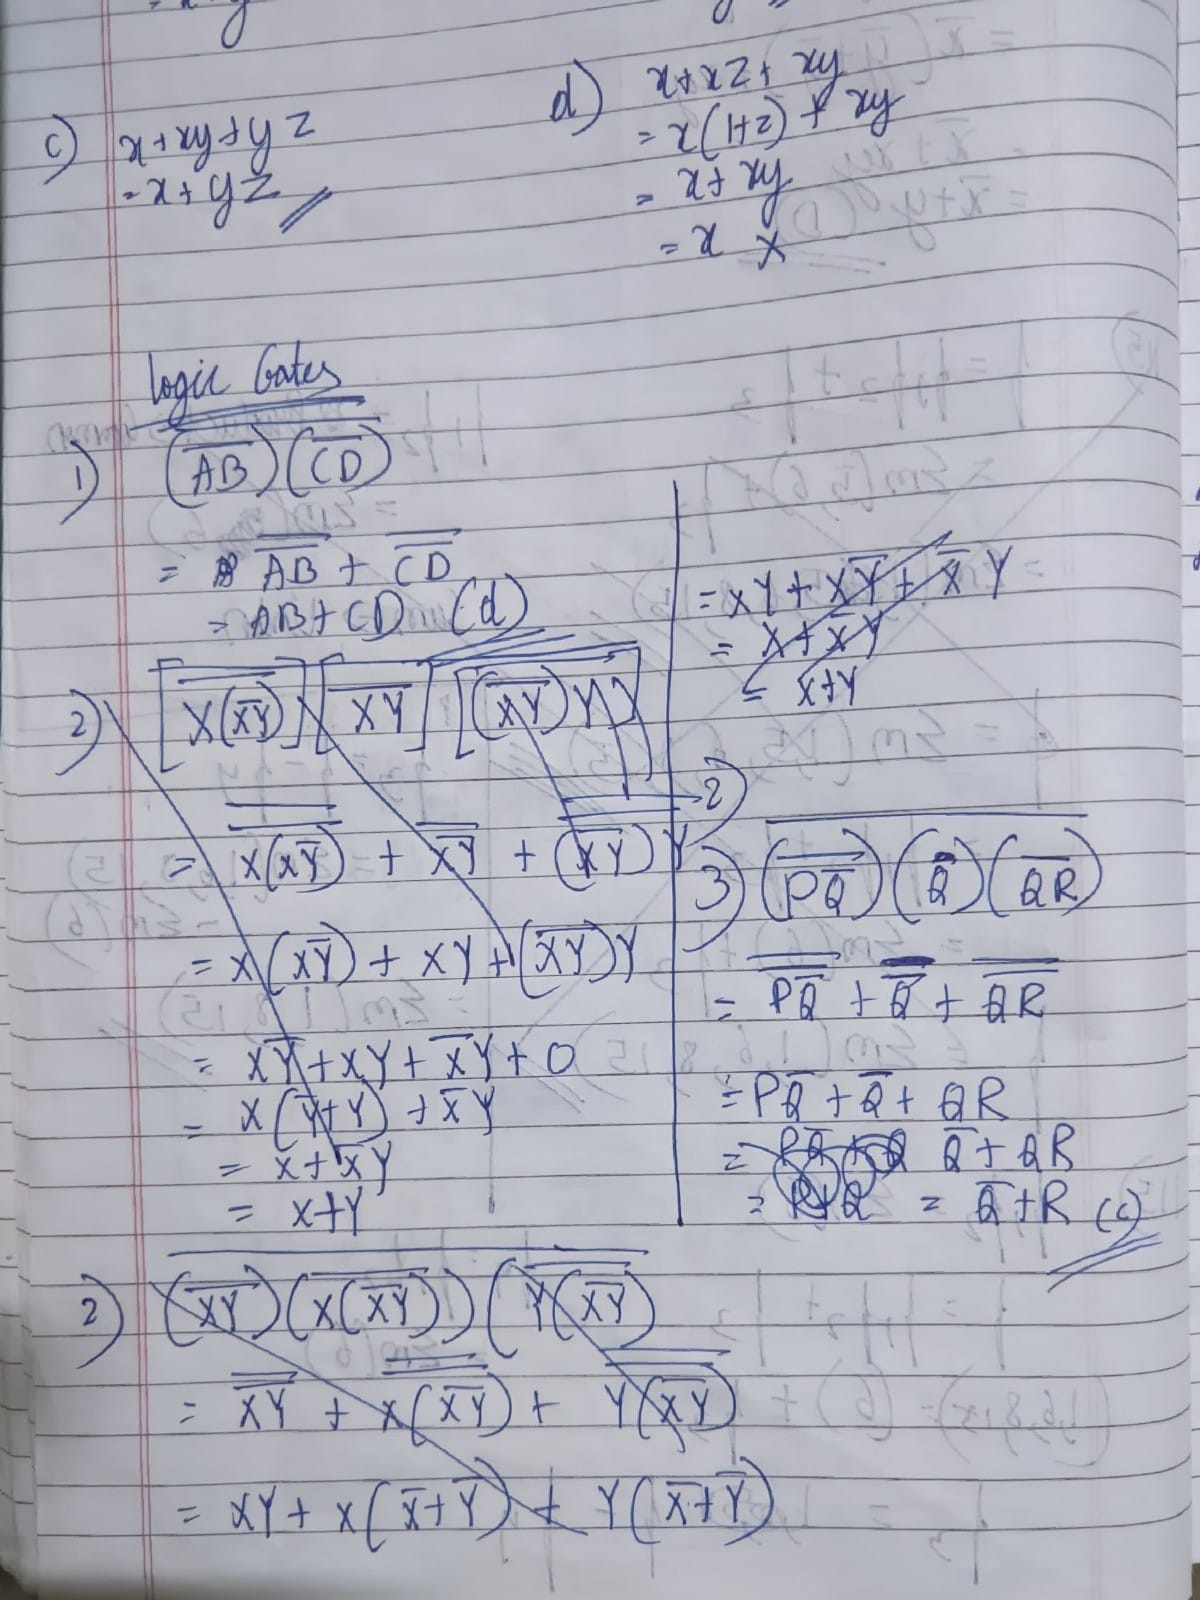 c) x+xy+yz
= x+yz
d) x+xz+xy
= x(1+z)+xy
= x+xy
= x x
Logic Gates
1) (A̅B̅)(C̅D̅)
= A̅B̅ + C̅D̅
= AB+CD (d)
2) [X(X̅Y̅)] [X̅Y̅] [(X̅Y̅)Y]
= X(X̅Y̅) + X̅Y̅ + (X̅Y̅)Y
= X(X̅Y̅) + XY + (X̅Y̅)Y
= XY̅ + XY + X̅Y + 0
= X(Y̅+Y) + X̅Y
= X+X̅Y
= X+Y
= XY + XY̅ + X̅Y
= X+X̅Y
= X+Y
2)
3) (P̅Q̅)(Q̅)(Q̅R̅)
= PQ̅ + Q̅ + QR
= PQ̅ + Q̅ + QR
= Q̅ + QR
= Q̅+R (c)
2) (X̅Y̅)(X(X̅Y̅))(Y(X̅Y̅)
= X̅Y̅ + X(X̅Y̅) + Y(X̅Y̅)
= XY + X(X̅+Y̅) + Y(X̅+Y̅)